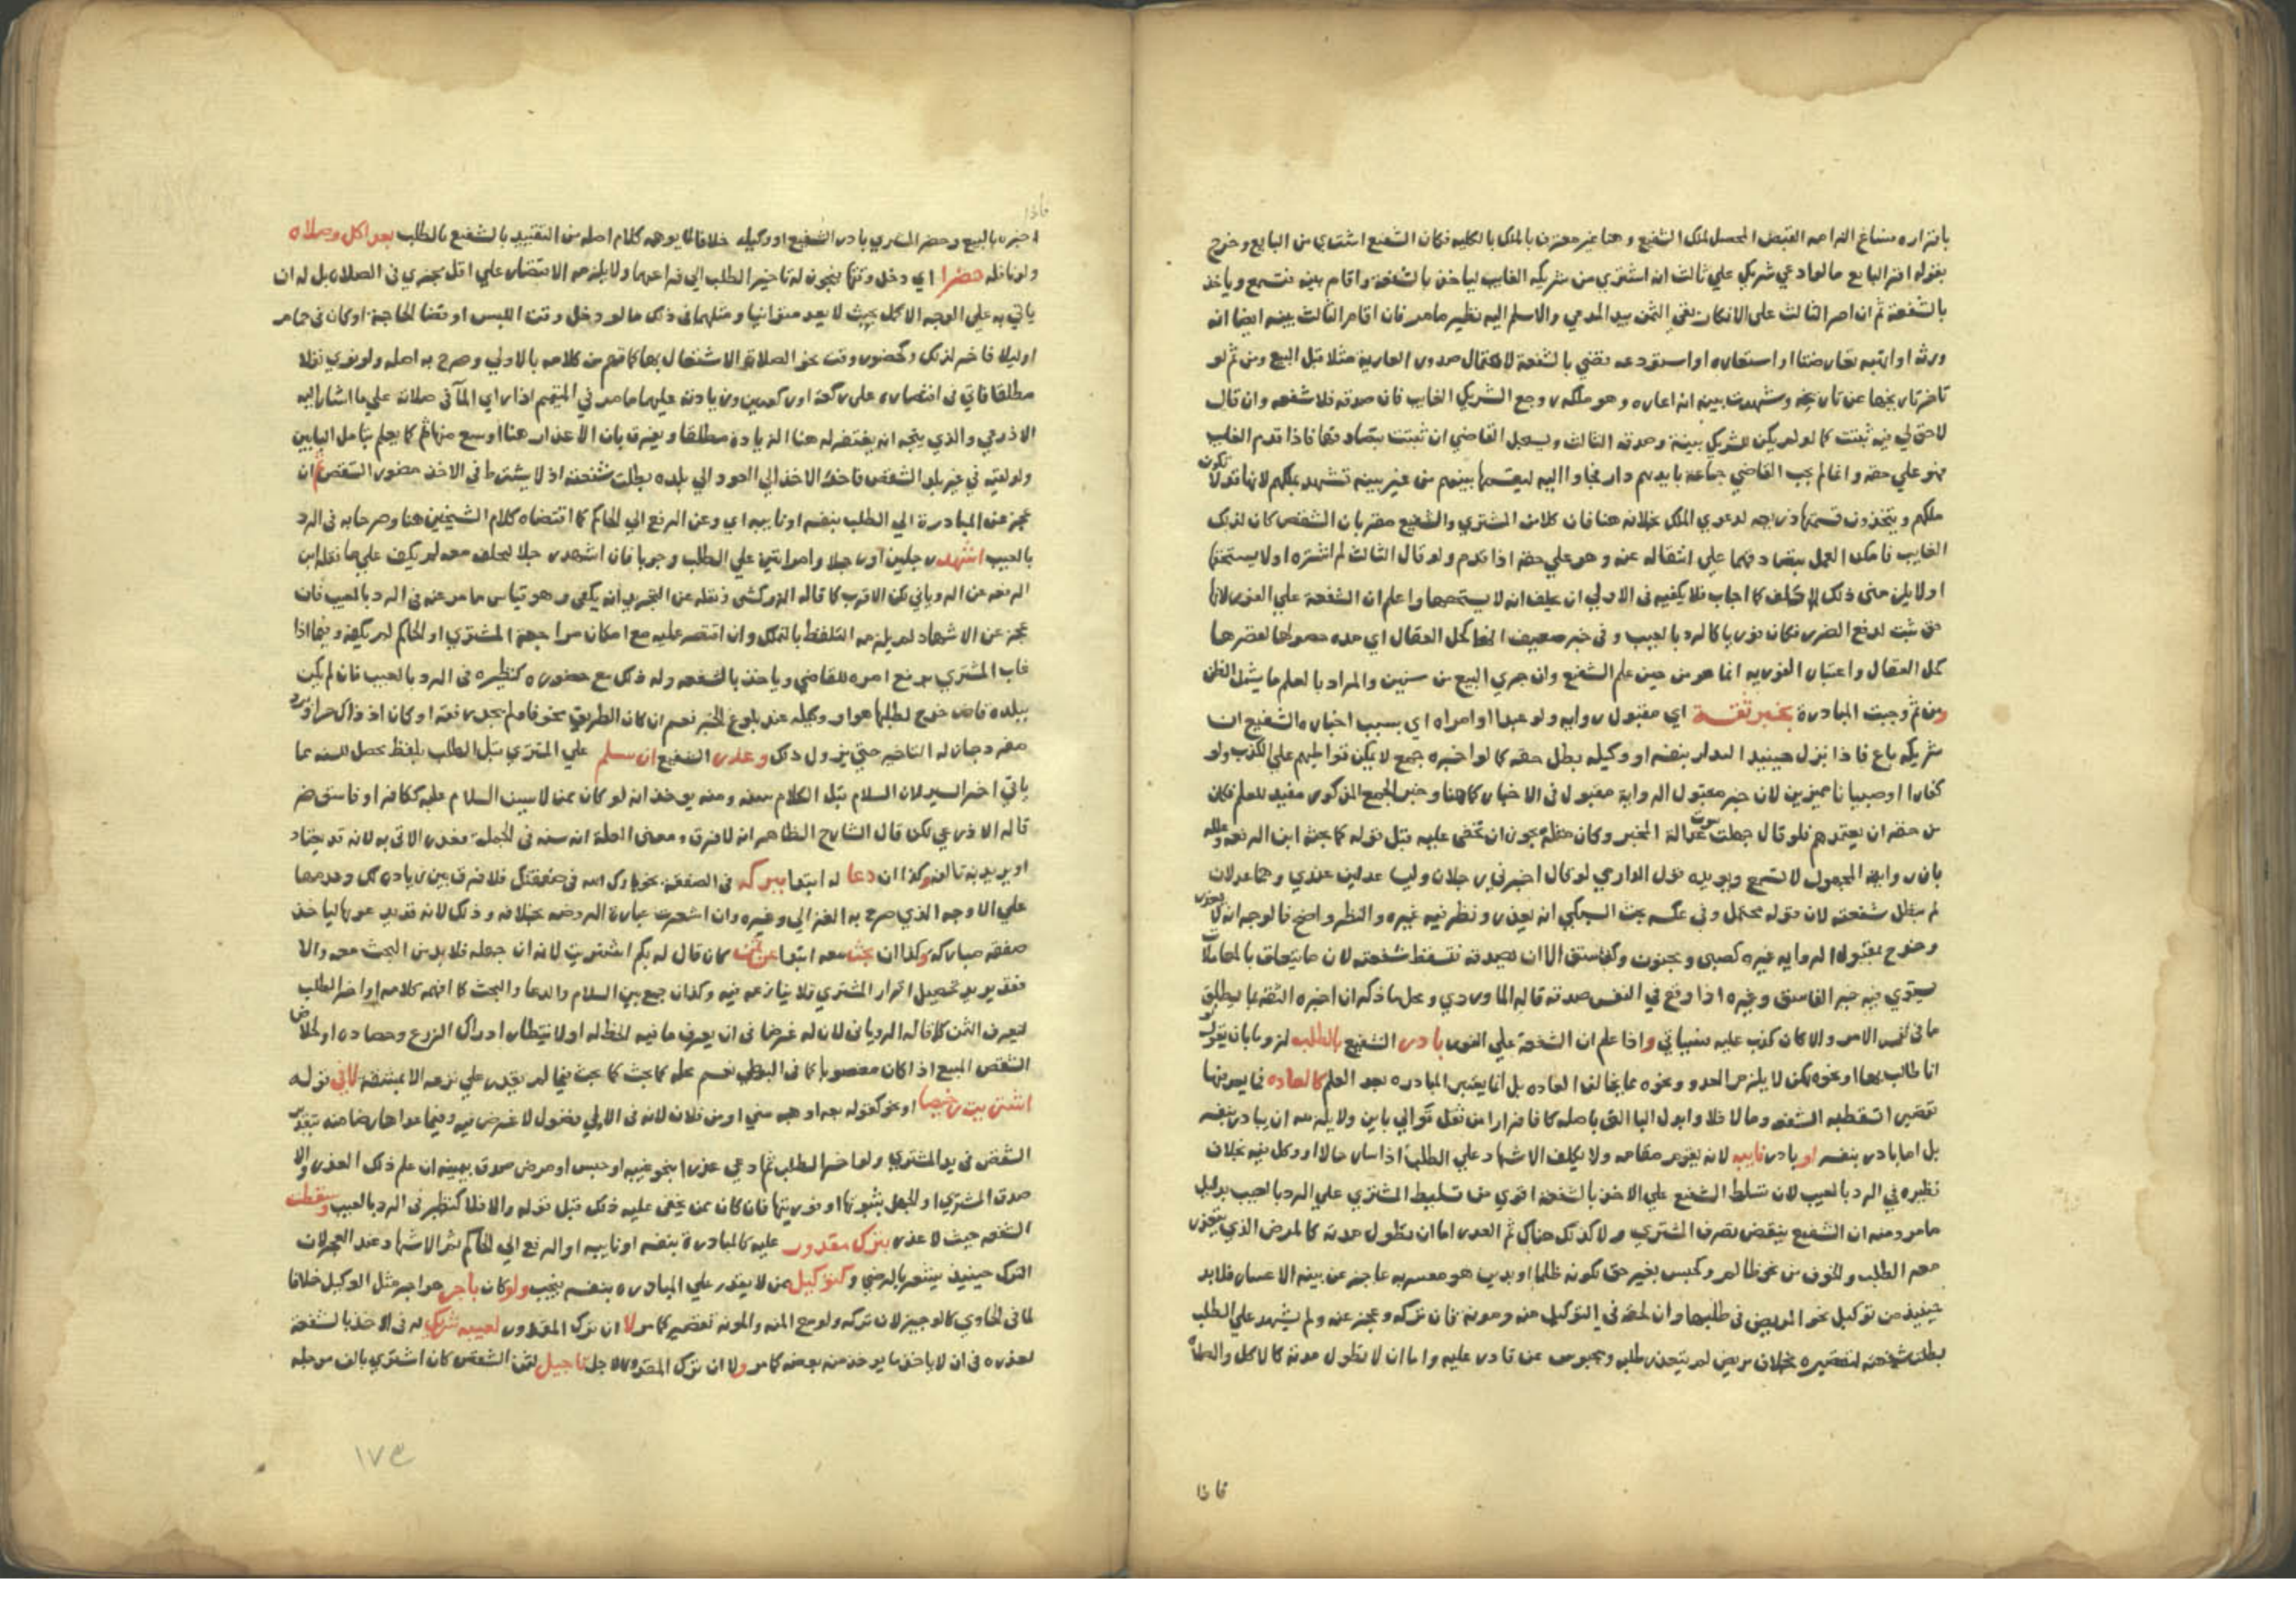 باقراره مساغ الزامه القبض المحصل لملك الشفيع وهنا غير معترف بالملك بالكليه فكان الشفيع اشتري من البايع وخرج
بقوله اقر البايع مالو ادعي شريك علي ثالث انه اشتري من شريكه الغايب لياخذ بالشفعة واقام بينه فتسمع وياخذ
بالشفعة ثم ان اصر الثالث علي الانكار بقي الثمن بيد المدعي والا سلم اليه نظير ما مر فان اقام الثالث بينه ايضا انه
ورثه او اتهبه تعارضتا او استعاره او استودعه تقضي بالشفعة لاحتمال صدور العارية مثلا قبل البيع ومن ثم لو
تاخر تاريخها عن تاريخه وشهدت بينه انه اعاره وهو ملكه روجع الشريك الغايب فان صدقه فلا شفعه وان قال
لا حق لي فيه ثبتت كما لو لم يكن للشريك بينة وصدقه الثالث ويسجل القاضي ان ثبتت بتصادقهما فاذا قدم الغايب
فهو علي حقه وانما لم يجب القاضي جماعة بايديهم دار فجاوا اليه ليقسمها بينهم من غير بينه تشهد بملكهم لانها قد لا تكون
ملكهم ويتخذون قسمتها ذريعه لدعوي الملك بخلافه هنا فان كلا من المشتري والشفيع مقر بان الشقص كان لذلك
الغايب فامكن العمل بتصادقهما علي انتقاله عنه وهو علي حقه اذا قدم ولو قال الثالث لم اشتره او لا يستحقها
او لا يلزمني ذلك الا حلف كما اجاب فلا يكفيه في الاولي ان يحلف انه لا يستحقها واعلم ان الشفعة علي الفور لانها
حق ثبت لدفع الضرر فكان فوريا كالرد بالعيب وفي خبر ضعيف انها كحل العقال اي مده حصولها لقصرها
كحل العقال واعتبار الفوريه انما هو من حين علم الشفيع وان جري البيع من سنين والمراد بالعلم ما يشمل الظن
ومن ثم وجبت المبادرة بخبر ثقة اي مقبول روايه ولو عبدا او امراه اي بسبب اخباره الشفيع ان
شريكه باع فاذا ترك حينيذ البدار بنفسه او وكيله بطل حقه كما لو اخبره جمع لا يمكن تواطيهم علي الكذب ولو
كفارا او صبيانا مميزين لان خبر مقبول الرواية مقبول في الاخبار كما هنا وخبر الجمع المذكور مفيد للعلم فكان
من حقه ان يعتمدهم فلو قال جهلت ثبوت عدالة المخبر وكان مثله يجوز ان تخفي عليه قبل قوله كما بحثه ابن الرفعه وعلله
بان رواية المجهول لا تسمع ويويده قول الدارمي لو قال اخبرني رجلان وليسا عدلين عندي وهما عدلان
لم تبطل شفعته لان قوله محتمل وفي عكسه بحث السبكي انه يعذر ونظر فيه غيره والنظر واضح فالوجه انه لا يعذر
وخرج بمقبول الروايه غيره كصبي ومجنون وكفاسق الا ان يصدقه فتسقط شفعته لان ما يتعلق بالمعاملات
يستوي فيه خبر الفاسق وغيره اذا وقع في النفس صدقه قاله الماوردي ومحل ما ذكر ان اخبره الثقة بما يطابق
ما في نفس الامر والا كان كذب عليه فسياتي واذا علم ان الشفعة علي الفور بادر الشفيع بالطلب لزوما بان يقول
انا طالب بها او نحوه لكن لا يلزمه العدو ونحوه مما يخالف العاده بل انما يعتبر المبادره بعد العلم كالعاده فما يعدونها
تقصيرا تسقط به الشفعه وما لا فلا وابدل الباالتي باصله كالفا فرارا من ثقل توالي باين ولا يلزمه ان يبادر بنفسه
بل اما بادر بنفسه او بادر نايبه لانه يقوم مقامه ولا يكلف الاشهاد علي الطلب اذا سار حالا او وكل فيه بخلاف
نظيره في الرد بالعيب لان تسلط الشفيع علي الاخذ بالشفعة اقوي من تسليط المشتري علي الرد بالعيب بدليل
ما مر ومنه ان الشفيع ينقض تصرف المشتري ولا كذلك هناك ثم العذر اما ان يطول مدته كالمرض الذي يتعذر
معه الطلب والخوف من نحو ظالم وكحبس بغير حق لكونه ظلما او بدين هو معسر به عاجز عن بينه الاعسار فلا بد
حينيذ من توكيل نحو المريض في طلبها وان لحقه في التوكيل منه ومونة فان تركه وعجز عنه ولم يشهد علي الطلب
بطلت شفعته لتقصيره بخلاف مريض لم يتعذر طلبه ومحبوس عن قادر عليه واما ان لا تطول مدته كالاكل والصلاة
فاذا
فاذا
اخبره بالبيع وحضر المشتري بادر الشفيع او وكيله خلافا لما يوهمه كلام اصله من التقييد بالشفيع بالطلب بعد اكل وصلاه
ولو نافله حضرا اي دخل وقتها فيجوز له تاخير الطلب الي فراغهما ولا يلزمه الاقتصار علي اقل مجزي في الصلاة بل له ان
ياتي به علي الوجه الاكمل بحيث لا يعد متوانيا ومثلهما في ذلك ما لو دخل وقت اللبس او وقضا الحاجة او كان في حمام
او ليلا فاخر لذلك وكحضور وقت نحو الصلاة الاشتغال بها كما فهم من كلامه بالاولي وصرح به اصله ولو نوي نفلا
مطلقا فاتي في اقتصاره علي ركعة او ركعتين وزيادته عليهما ما مر في المتيمم اذا راي الما في صلاته علي ما اشار اليه
الاذرعي والذي يتجه انه يغتفر له هنا الزيادة مطلقا ويفرق بان الاعذار هنا اوسع منها ثم كما يعلم بتامل البابين
ولو لقيه في غير بلد الشقص فاخر الاخذ الي العود الي بلده بطلت شفعته اذ لا يشترط في الاخذ حضور الشقص ثم ان
عجز عن المبادرة الي الطلب بنفسه او نايبه اي وعن الرفع الي الحاكم كما اقتضاه كلام الشيخين هنا وصرحا به في الرد
بالعيب اشهد رجلين او رجلا وامراتين علي الطلب وجوبا فان اشهد رجلا ليحلف معه لم يكف علي ما نقله ابن
الرفعه عن الروياني لكن الاقرب كما قاله الزركشي ونقله عن التجريد انه يكفي وهو قياس ما مر عنه في الرد بالعيب فان
عجز عن الاشهاد لم يلزمه التلفظ بالتملك وان اقتصر عليه مع امكان مواجهة المشتري او الحاكم لم يكفه وفيما اذا
غاب المشتري يرفع امره للقاضي وياخذ بالشفعه وله ذلك مع حضوره كنظيره في الرد بالعيب فان لم يكن
ببلده قاض خرج لطلبها هو او وكيله عند بلوغ الخبر نعم ان كان الطريق مخوفا ولم يجد رفقة او كان اذ ذاك حر او برد
مفرط جاز له التاخير حتي يزول ذلك وعذر الشفيع ان سلم علي المشتري قبل الطلب بلفظ تحصل للسنه مما
ياتي اخر السير لان السلام قبل الكلام سنه ومنه يوخذ انه لو كان ممن لا يسن السلام عليه ككافر او فاسق ضر
قاله الاذرعي لكن قال الشارح الظاهر انه لا فرق ومعني العلة انه سنه في الجملة فعذر الاتي به لانه قد يعتاد
او يريد به تالفه وكذا ان دعا له ابتدا ببركه في الصفقة نحو بارك الله في صفقتك فلا فرق بين زيادة لك وعدمها
علي الاوجه الذي صرح به الغزالي وغيره وان اشعرت عبارة الروضه بخلافه وذلك لانه قد يدعو بها لياخذ
صفقه مباركه وكذا ان بحث معه ابتدا عن ثمن كان قال له بكم اشتريت لانه ان جهله فلا بد من البحث معه والا
فقد يريد تحصيل اقرار المشتري فلا ينازعه فيه وكذا ان جمع بين السلام والدعا والبحث كما افهمه كلامه او اخر الطلب
ليعرف الثمن كما قاله الروياني لان له غرضا في ان يعرف ما فيه الحظ له او لانتظار ادراك الزرع وحصاده او لخلاص
الشقص المبيع اذا كان مغصوبا كما في البويطي نعم محله كما بحث فيما لم يقدر علي نزعه الا بمشقة لا في قوله
اشتريت رخيصا او نحو كقوله بعه او هبه مني او من فلان لانه في الاولي فضول لا غرض فيه وفيما عداها رضا منه بتقرير
الشقص في يد المشتري ولو اخر الطلب ثم ادعي عذرا بنحو غيبه او حبس او مرض صدق بيمينه ان علم ذلك العذر والا
صدق المشتري او الجهل بثبوتها او فوريتها فان كان ممن يخفي عليه ذلك قبل قوله والا فلا كنظير في الرد بالعيب وسقطت
الشفعه حيث لا عذر بترك مقدور عليه كالمبادرة بنفسه او نايبه او الرفع الي الحاكم ثم الاشهاد عند العجز لان
الترك حينيذ يشعر بالرضي وكتوكيل ممن لا يقدر علي المبادره بنفسه فيجب ولو كان باجر هو اجر مثل الوكيل خلافا
لما في الحاوي كالوجيز لان تركه ولو مع المنه والمونه تقصير كما مر لا ان ترك المقدور لغيبه شريك له في الاخذ بالشفعة
لعذره في ان لا ياخذ ما يوخذ منه بعضه كما مر ولا ان ترك المقدور لاجل تاجيل لثمن الشقص كان اشتري بالف موجله
١٧٤